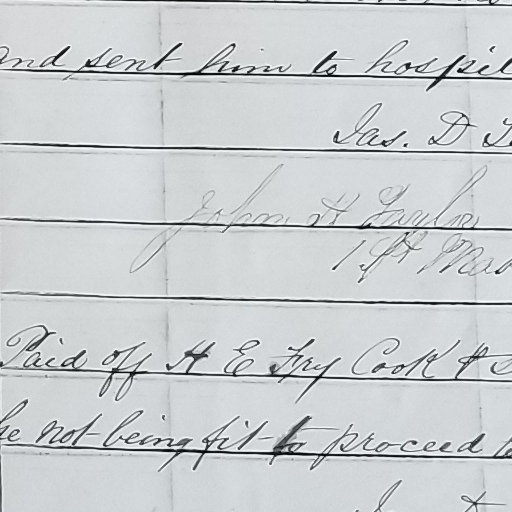 and sent him to hospit
Jas. D T
John H Taylor
1st Mat
Paid off H E Fry Cook & S
he not being fit to proceed to